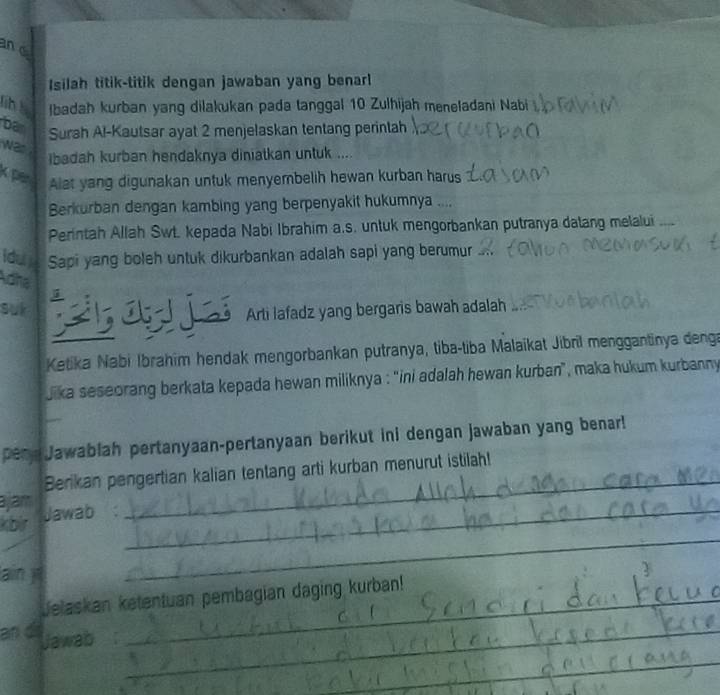 an
Isilah titik-titik dengan jawaban yang benar!
Ibadah kurban yang dilakukan pada tanggal 10 Zulhijah meneladani Nabi Ibrahim
Surah Al-Kautsar ayat 2 menjelaskan tentang perintah berkurban
Ibadah kurban hendaknya diniatkan untuk ....
k pen Alat yang digunakan untuk menyembelih hewan kurban harus tasam
Berkurban dengan kambing yang berpenyakit hukumnya ....
Perintah Allah Swt. kepada Nabi Ibrahim a.s. untuk mengorbankan putranya datang melalui ....
Idul Sapi yang boleh untuk dikurbankan adalah sapi yang berumur ... 2 tahun memasuki t
Adha
suk فَصَلِّ لِرَبِّكَ وَانْحَرْ Arti lafadz yang bergaris bawah adalah ... berkurbanlah
Ketika Nabi Ibrahim hendak mengorbankan putranya, tiba-tiba Malaikat Jibril menggantinya denga
Jika seseorang berkata kepada hewan miliknya : "ini adalah hewan kurban", maka hukum kurbanny
Jawablah pertanyaan-pertanyaan berikut ini dengan jawaban yang benar!
Berikan pengertian kalian tentang arti kurban menurut istilah!
ajam Jawab : kepada Allah dengan cara me
kbir hari dan cara y
ain y
Jelaskan ketentuan pembagian daging kurban!
an di Jawab : diri sendiri dan kelua
miskin dan orang